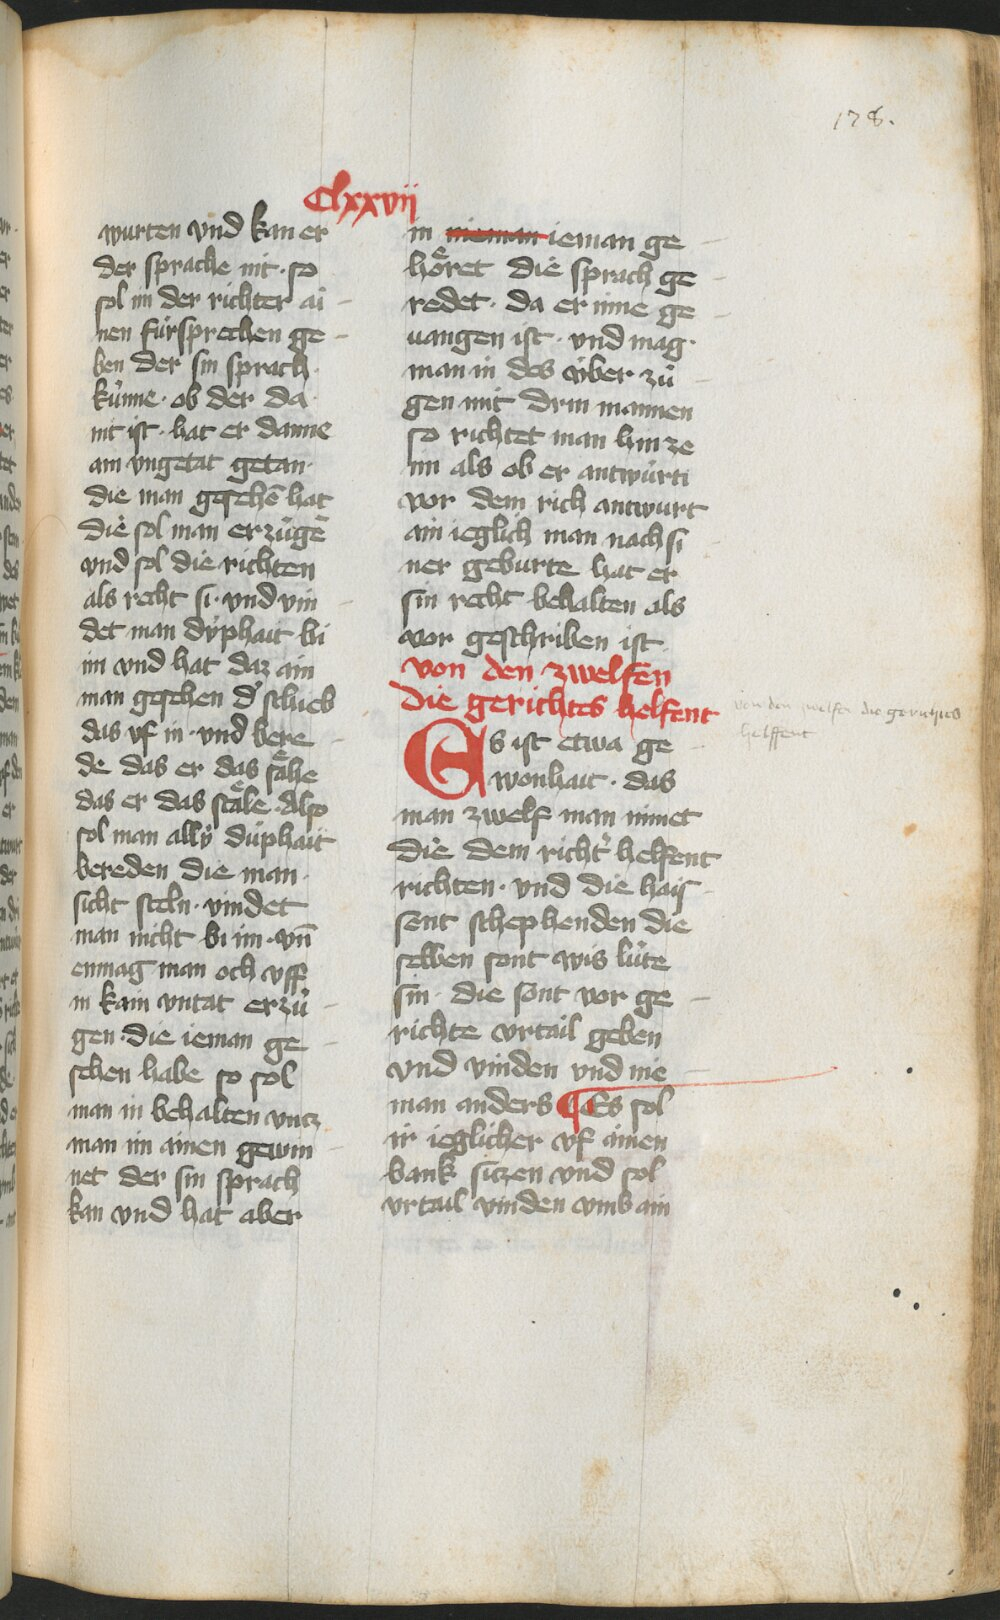 178.
Clxxvii
wurten vnd kan er
der sprache nit · so
sol im der richter ai
nen fürsprechen ge
ben der sin sprach
künne · ob der da
nit ist · hat er danne
ain vngetat getan ·
die man gesehē hat
die sol man erzúgē
vnd sol die richten
als recht si · vnd vin
det man dÿphait bi
im vnd hat daz ain
man gesehen d' schieb
das vf in · vnd bere
de das er das sähe
das er das stäle · Also
sol man ally düphait
bereden die man ·
sicht steln · vindet
man nicht bi im · vn̄
enmag man och vff
in kain vntat erzú
gen · die ieman ge
sehen habe so sol
man in behalten vntz
man im ainen gewin
net der sin sprach
kan vnd hat aber
in nieman ieman ge
höret die sprach ge
redet · da er inne ge
uangen ist · vnd mag ·
man in des vͥber zú
gen mit drin mannen
so richtet man hinze
im als ob er antwúrti
vor dem rich antwurt
ain ieglich man nach si
ner geburte hat er
sin recht behalten als
vor geschriben ist ·
von den zwelfen
die gerichtes helfent
von den zwelfen die gerichtes
helffent
Es ist etwa ge
wonhait · das
man zwelf man nimet
die dem richt' helfent
richten · vnd die hais
sent schephenden die
selben sont wis lúte
sin · die sont vor ge
richte vrtail geben
vnd vinden vnd nie
man anders ¶ Es sol
ir ieglicher vf ainen
bank sitzen vnd sol
vrtail vinden vmb ain